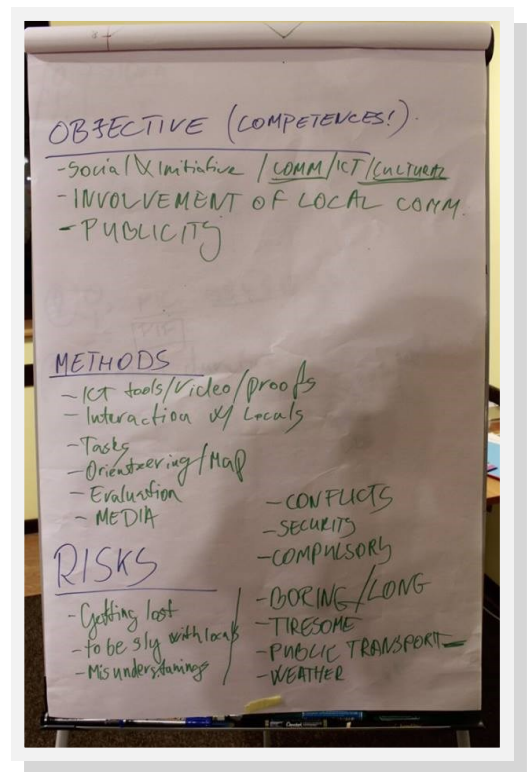 OBJECTIVE (COMPETENCES!).
- Social & Initiative / COMM/ICT/CULTURAL
- INVOLVEMENT OF LOCAL COMM.
- PUBLICITY
METHODS
- ICT tools/Video/proofs
- Interaction w/ Locals
- Tasks
- Orienteering/Map
- Evaluation
- MEDIA
RISKS
- Getting lost
- to be sly with locals
- Misunderstanings
- CONFLICTS
- SECURITY
- COMPULSORY
- BORING/LONG
- TIRESOME
- PUBLIC TRANSPORT
- WEATHER